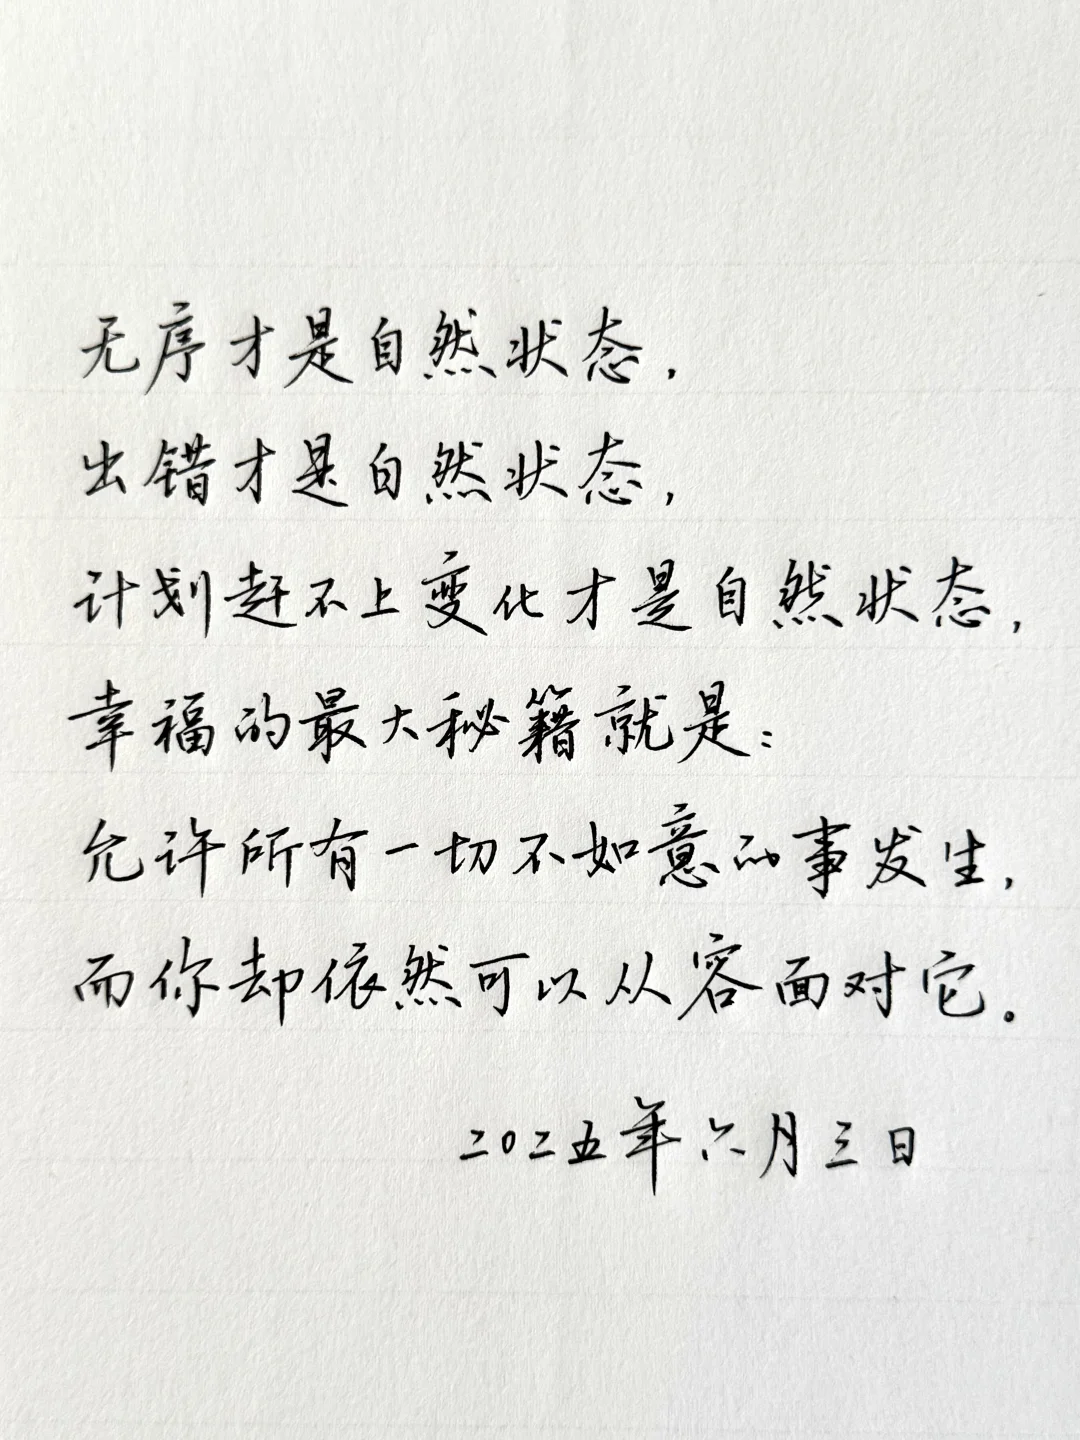 无序才是自然状态，
出错才是自然状态，
计划赶不上变化才是自然状态，
幸福的最大秘籍就是：
允许所有一切不如意的事发生，
而你却依然可以从容面对它。
二〇二五年六月三日